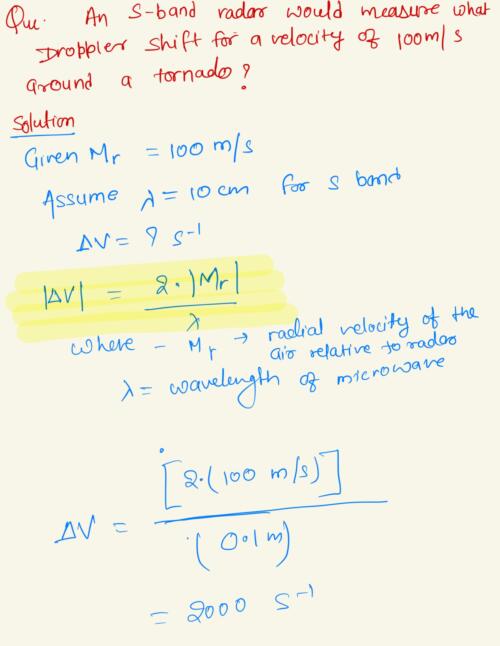 Qu. An S-band radar would measure what
Droppler shift for a velocity of 100m/s
around a tornado?
Solution
Given Mr = 100 m/s
Assume λ = 10 cm for s band
ΔV = ? s⁻¹
|ΔV| = 2·|Mr| / λ
where - Mr → radial velocity of the
air relative to radar
λ = wavelength of microwave
ΔV = [2·(100 m/s)] / (0.1m)
= 2000 s⁻¹